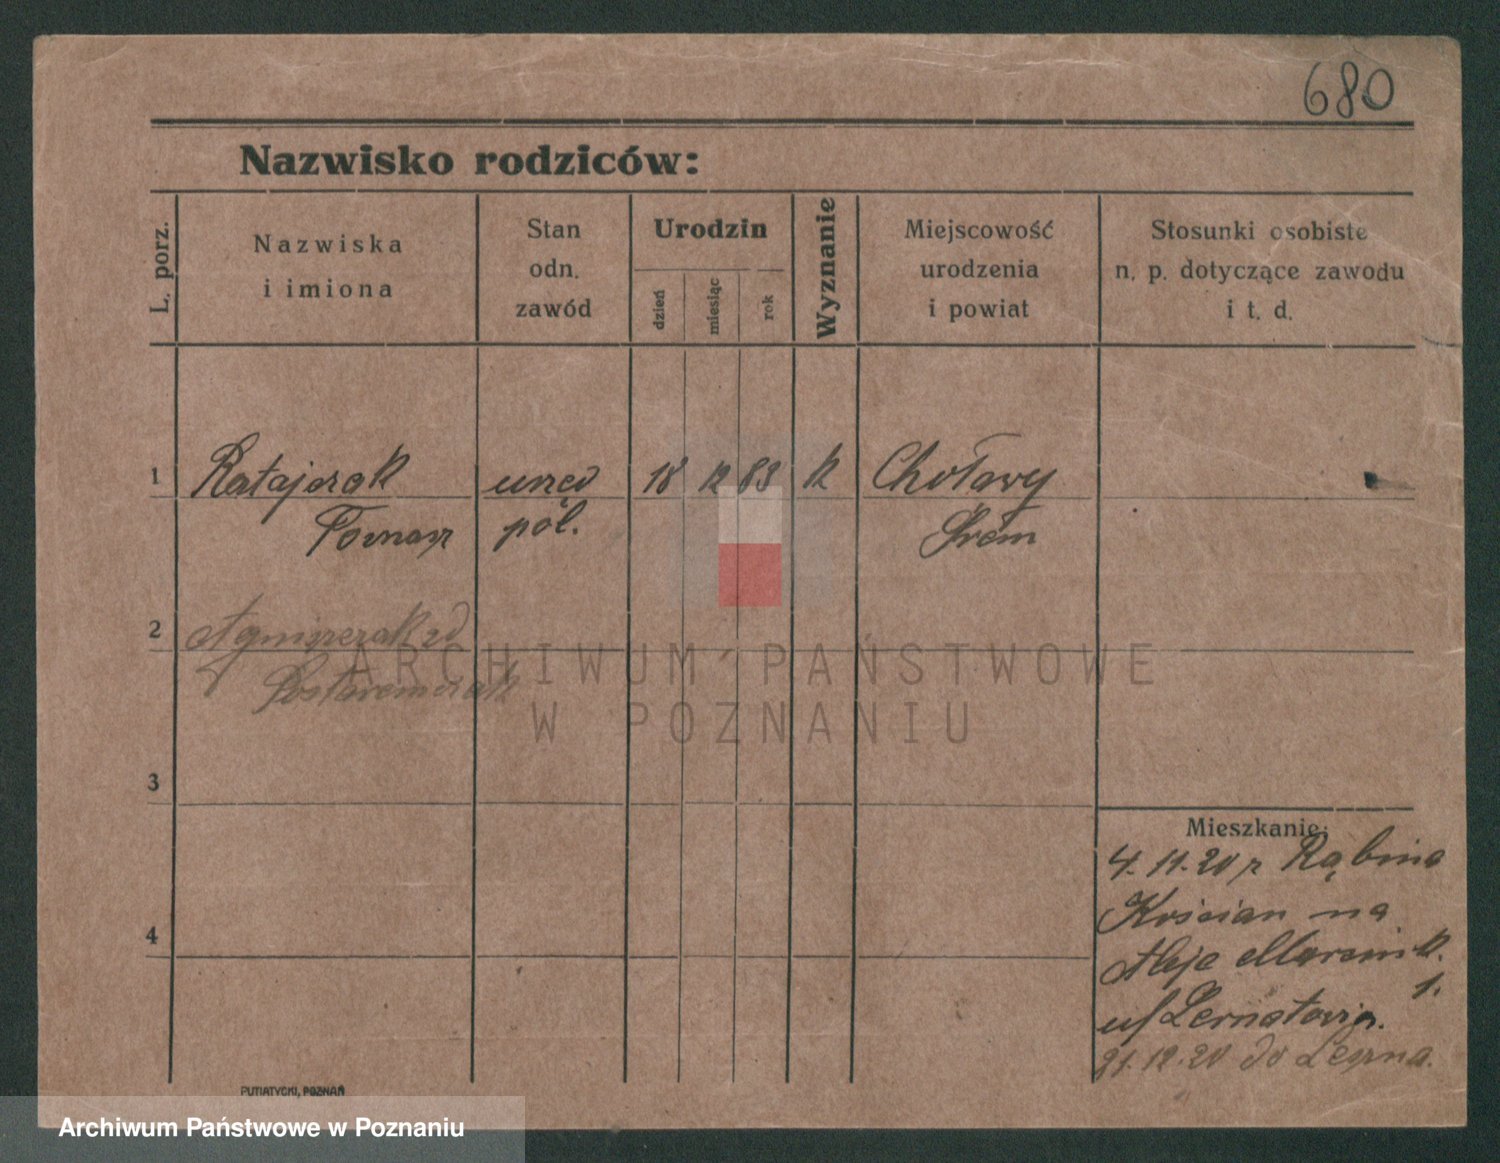 680
Nazwisko rodziców:
L. porz.
Nazwiska
i imiona
Stan
odn.
zawód
Urodzin
dzień
miesiąc
rok
Wyznanie
Miejscowość
urodzenia
i powiat
Stosunki osobiste
n. p. dotyczące zawodu
i t. d.
1 Ratajczak urzęd 18 12 83 k Chotowy
Tomasz pol. Śrem
2
3
Mieszkanie:
4. 11. 20 r Rąbina
Kościan na
4
Aleja Marcink.
1.
21. 12. 20 do Leszna.
PUTIATYCKI, POZNAŃ
ARCHIWUM PAŃSTWOWE
W POZNANIU
Archiwum Państwowe w Poznaniu